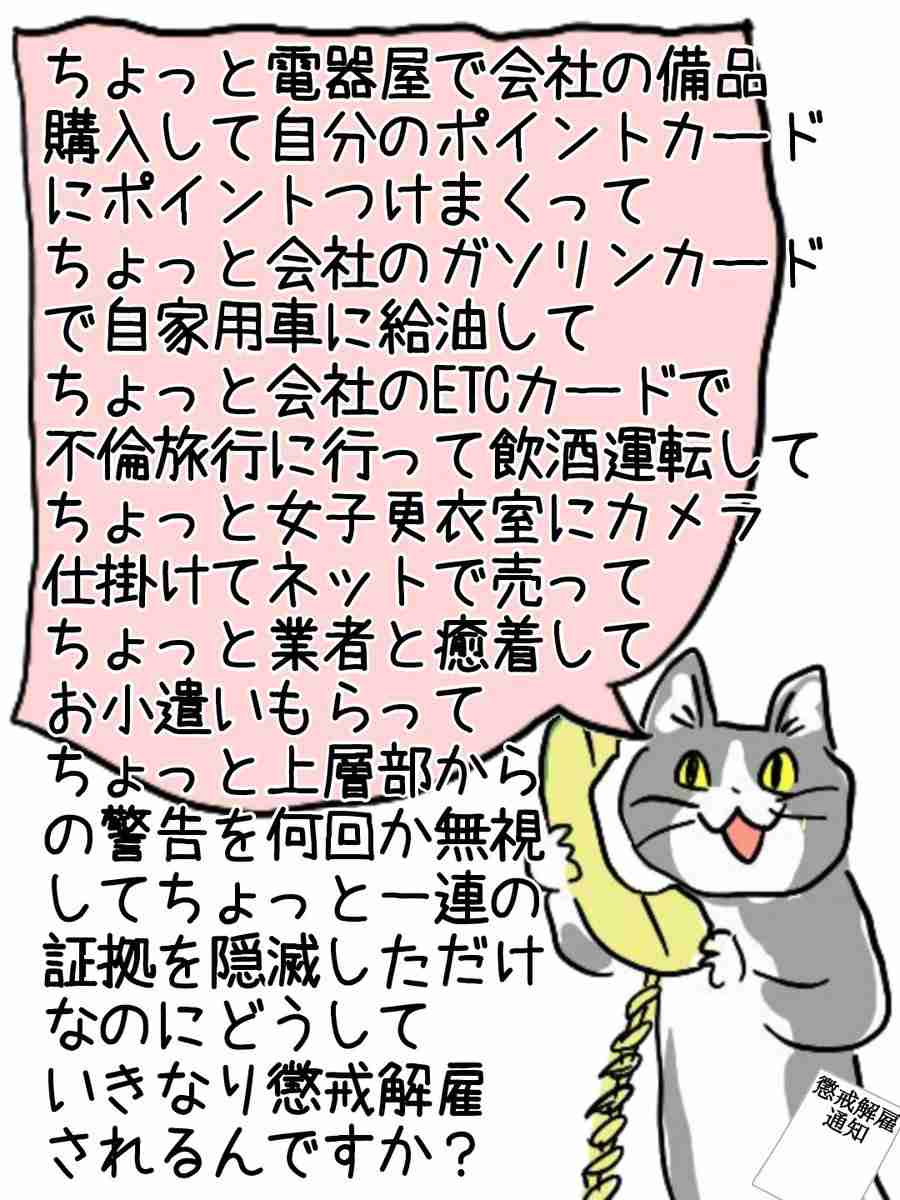 ちょっと電器屋で会社の備品
購入して自分のポイントカード
にポイントつけまくって
ちょっと会社のガソリンカード
で自家用車に給油して
ちょっと会社のETCカードで
不倫旅行に行って飲酒運転して
ちょっと女子更衣室にカメラ
仕掛けてネットで売って
ちょっと業者と癒着して
お小遣いもらって
ちょっと上層部から
の警告を何回か無視
してちょっと一連の
証拠を隠滅しただけ
なのにどうして
いきなり懲戒解雇
されるんですか？
懲戒解雇
通知